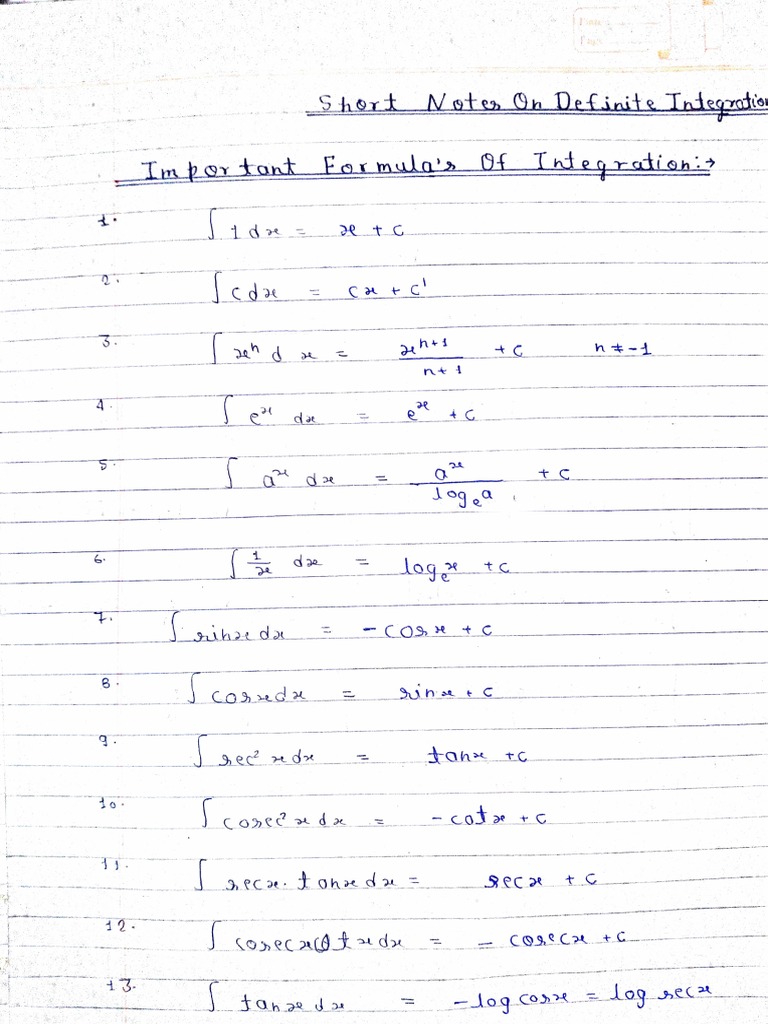 Short Notes On Definite Integration
Important Formula's Of Integration:→
1. ∫ 1 dx = x + c
2. ∫ c dx = cx + c'
3. ∫ xⁿ d x = xⁿ⁺¹/n+1 + c n ≠ -1
4. ∫ eˣ dx = eˣ + c
5. ∫ aˣ dx = aˣ/logₑa + c
6. ∫ 1/x dx = logₑx + c
7. ∫ sinx dx = - cosx + c
8. ∫ cosx dx = sinx + c
9. ∫ sec² x dx = tanx + c
10. ∫ cosec² x dx = - cotx + c
11. ∫ secx. tanx dx = secx + c
12. ∫ cosecx cotx dx = - cosecx + c
13. ∫ tanx dx = - log cosx = log secx